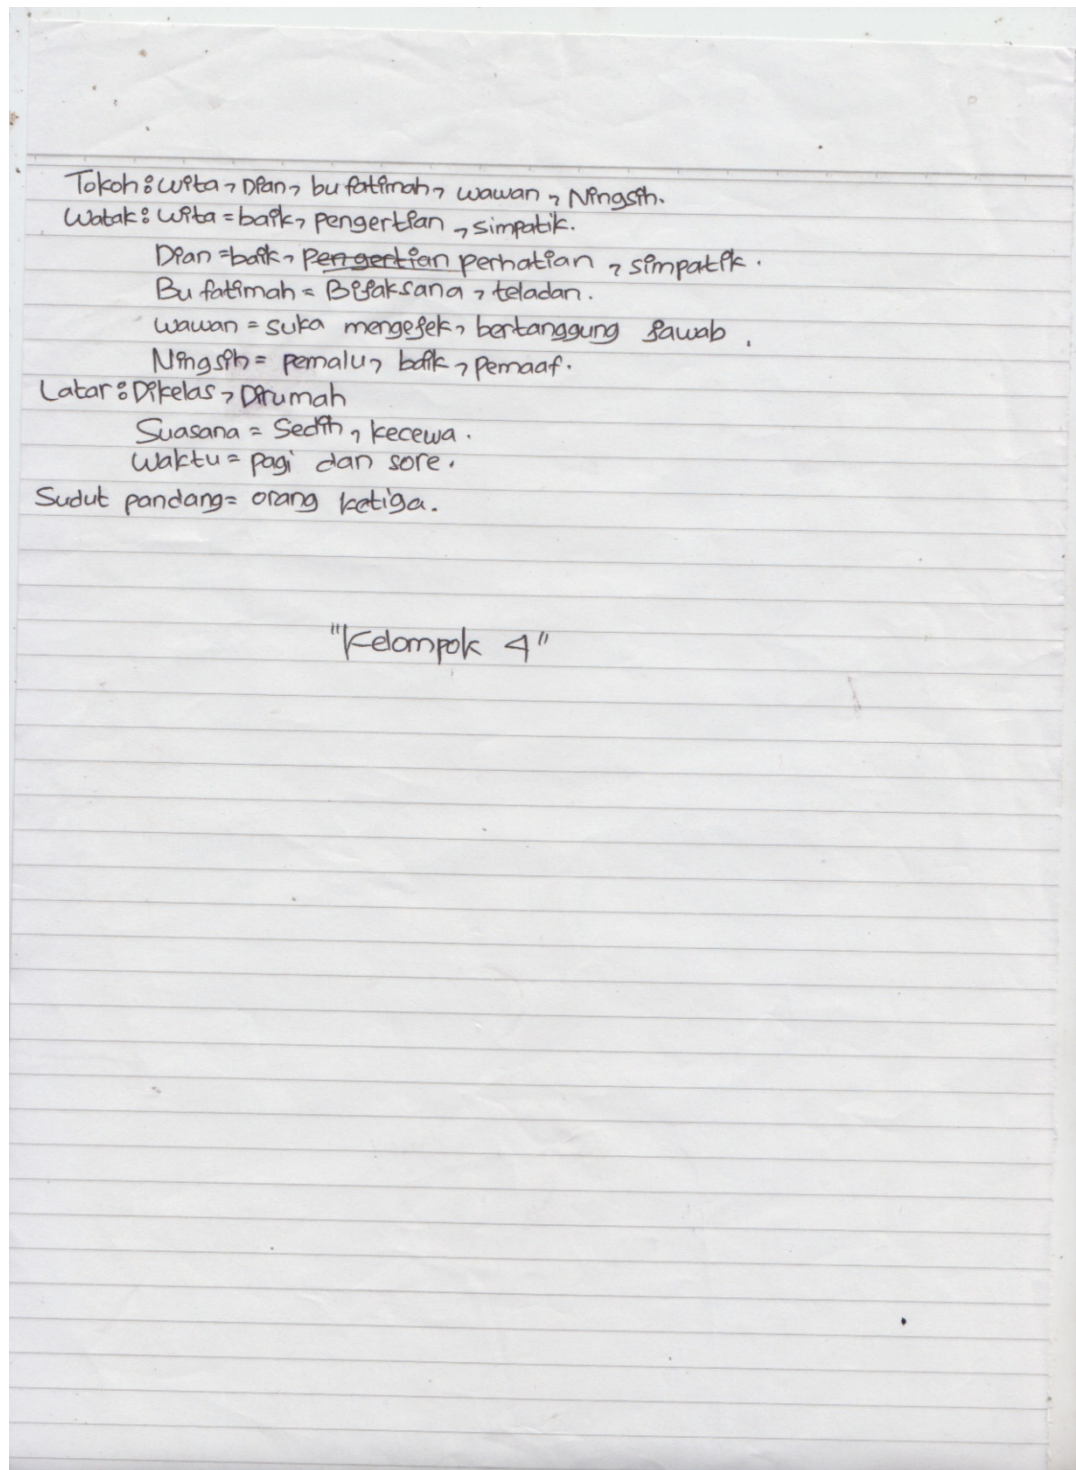 Tokoh : Wita, Dian, bu fatimah, wawan, Ningsih.
Watak : Wita = baik, pengertian, simpatik.
Dian = baik, pengertian perhatian, simpatik.
Bu fatimah = Bijaksana, teladan.
wawan = suka mengejek, bertanggung jawab.
Ningsih = pemalu, baik, pemaaf.
Latar : Dikelas, Dirumah
Suasana = Sedih, kecewa.
Waktu = pagi dan sore.
Sudut pandang = orang ketiga.
"Kelompok 4"